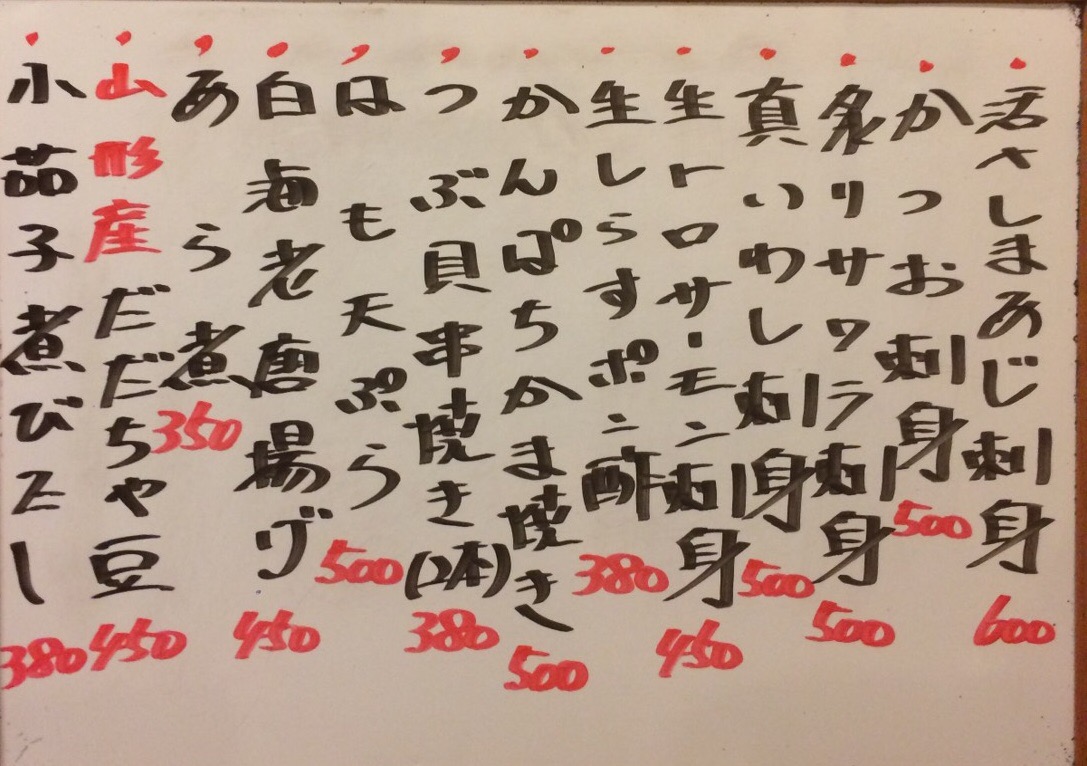 活〆しまあじ刺身 600
かつお刺身 500
炙りサワラ刺身 500
真いわし刺身 500
生トロサーモン刺身 450
生しらすポン酢 380
かんぱちかま焼き 500
つぶ貝串焼き(2本) 380
はも天ぷら 500
白海老唐揚げ 450
あら煮 350
山形産だだちゃ豆 450
小茄子煮びたし 380